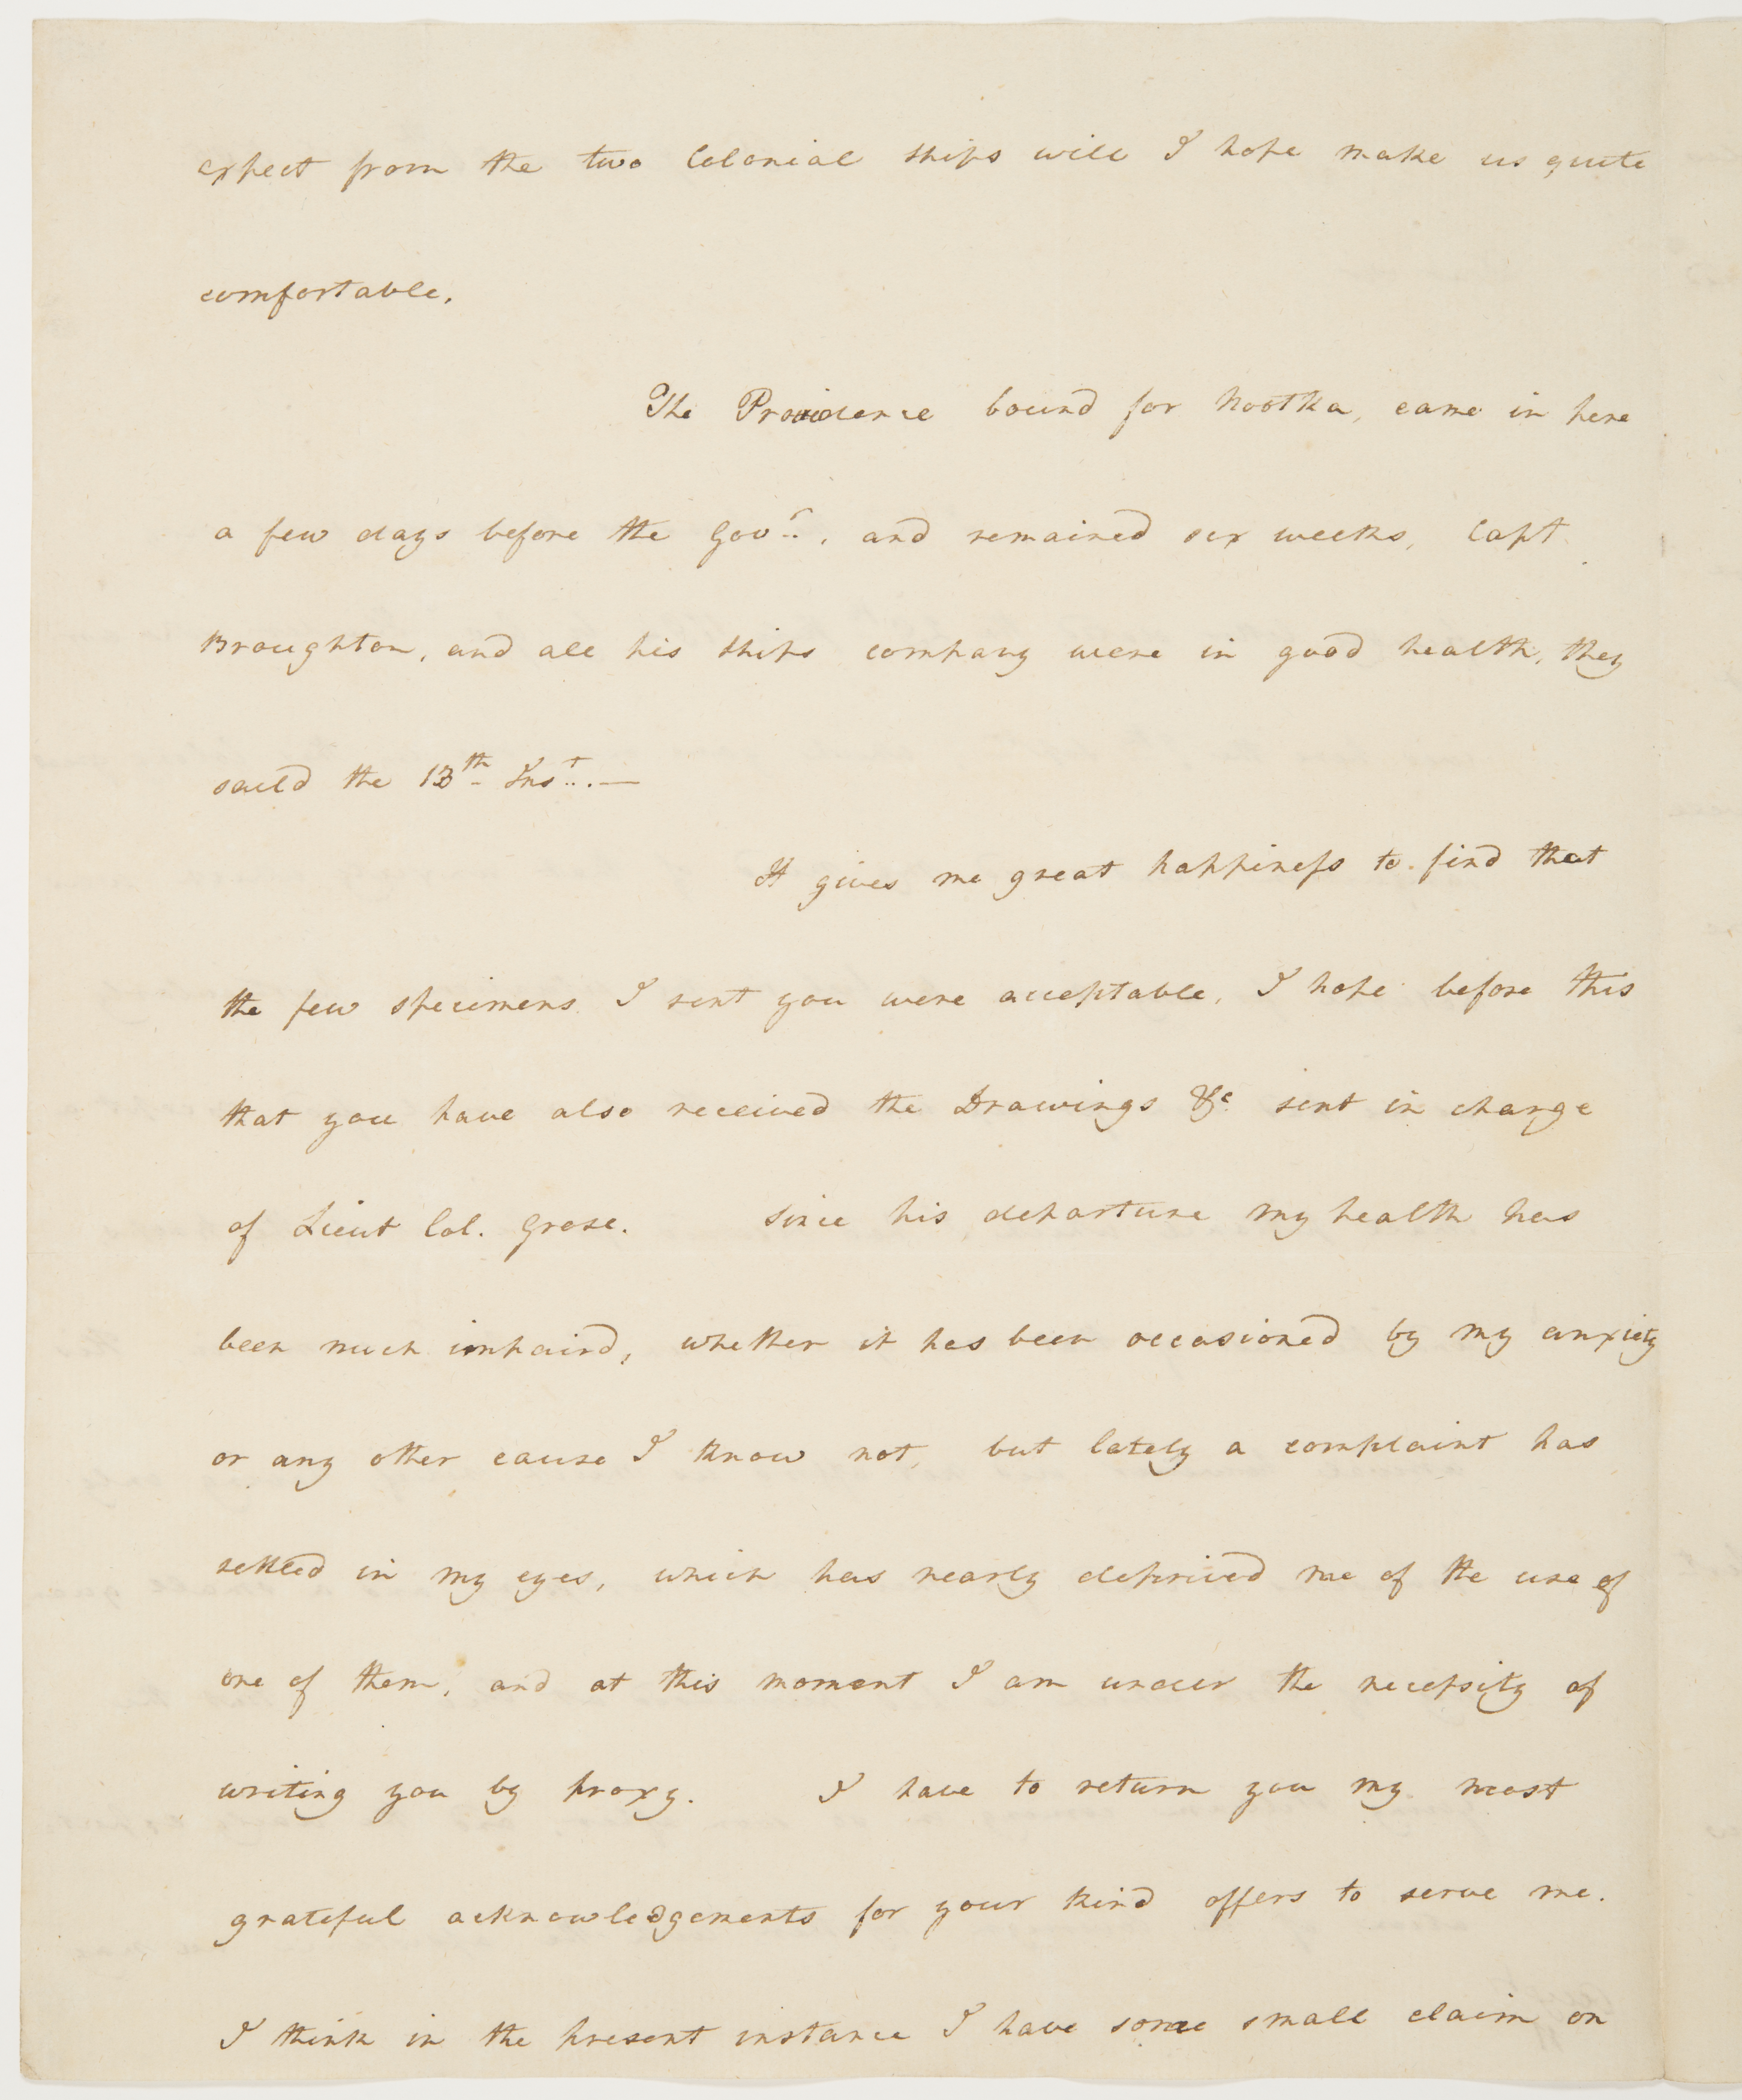 expect from the two Colonial ships will I hope make us quite
comfortable.
The Providence bound for Nootka, came in here
a few days before the Gov.r, and remained six weeks, Capt
Broughton, and all his ships company were in good health, they
saild the 13th Inst. —
It gives me great happiness to find that
the few specimens I sent you were acceptable, I hope before this
that you have also received the Drawings &c. sent in charge
of Lieut Col. Grose. Since his departure my health has
been much impaird, whether it has been occasioned by my anxiety
or any other cause I know not, but lately a complaint has
settled in my eyes, which has nearly deprived me of the use of
one of them, and at this moment I am under the necessity of
writing you by proxy. I have to return you my most
grateful acknowledgements for your kind offers to serve me.
I think in the present instance I have some small claim on